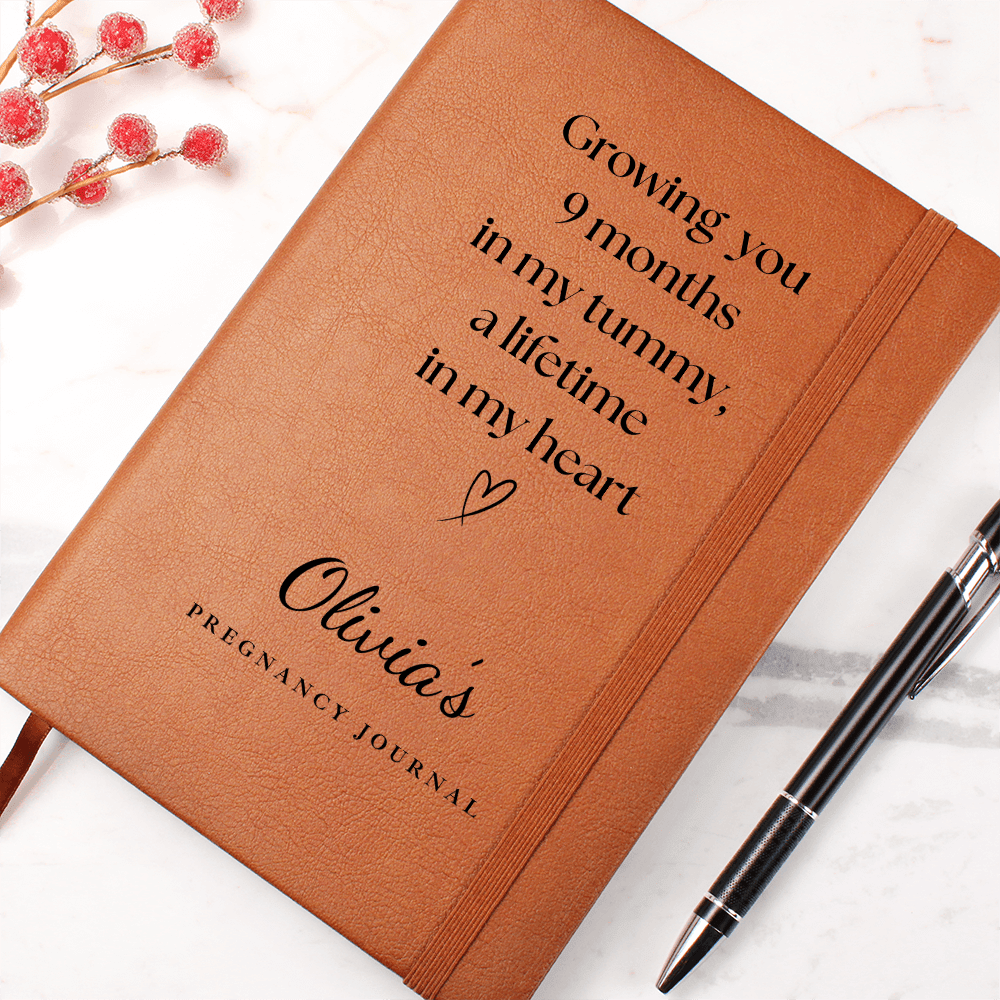 Growing you
9 months
in my tummy,
a lifetime
in my heart
Olivia's
PREGNANCY JOURNAL